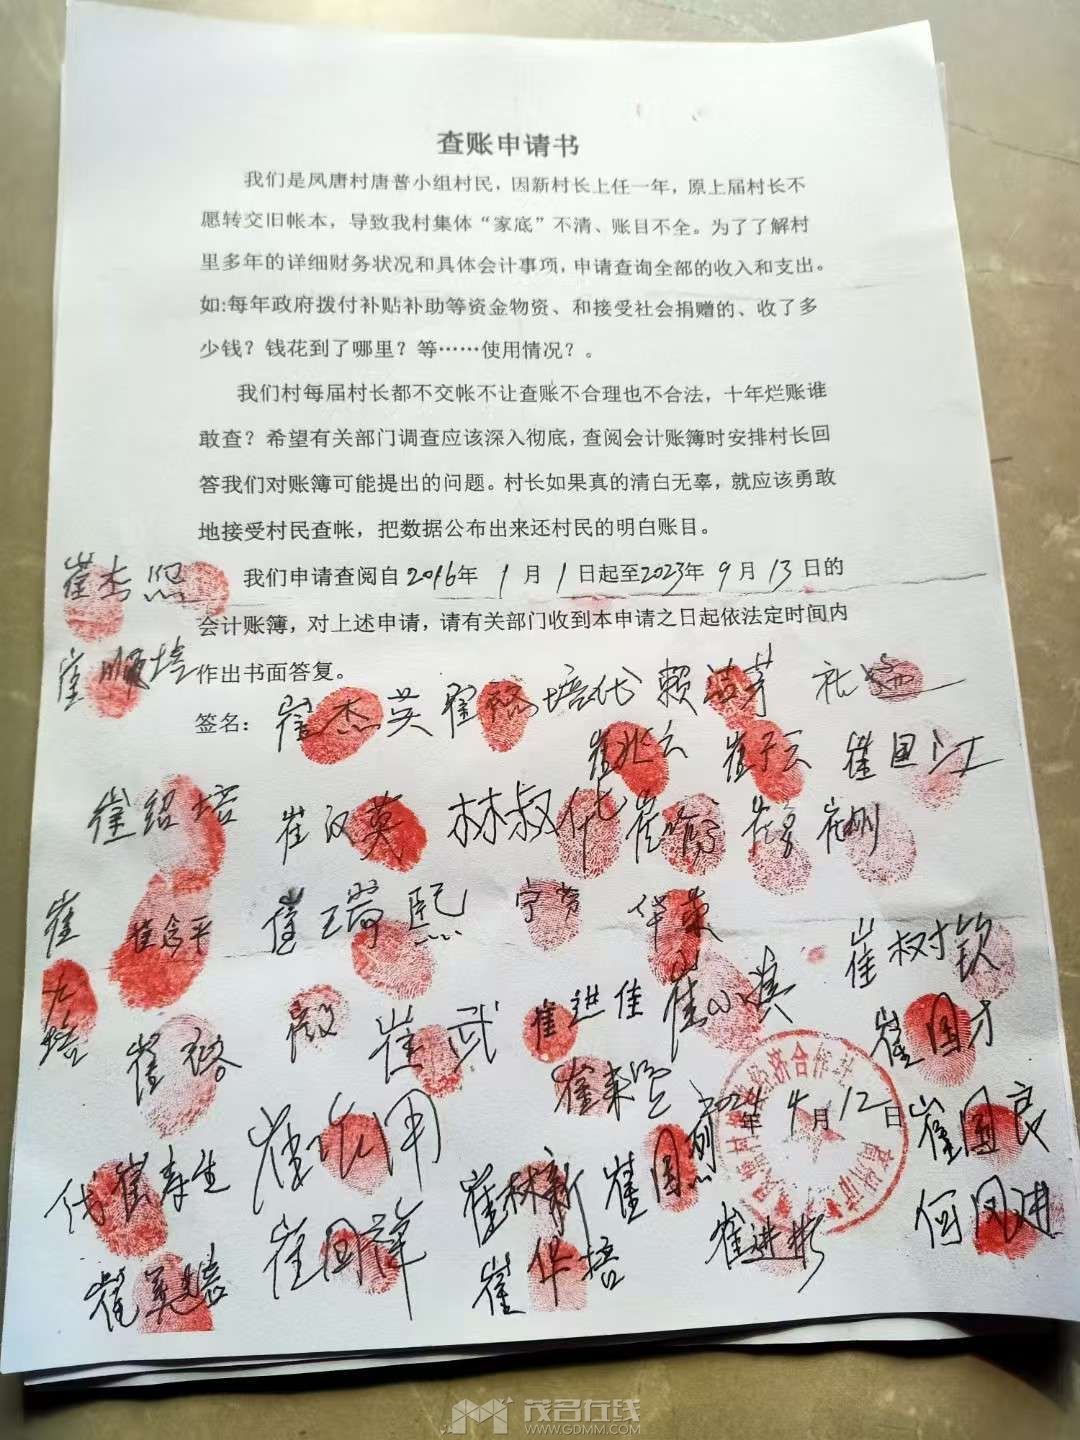 查账申请书
我们是凤唐村唐普小组村民，因新村长上任一年，原上届村长不
愿转交旧帐本，导致我村集体“家底”不清、账目不全。为了了解村
里多年的详细财务状况和具体会计事项，申请查询全部的收入和支出。
如:每年政府拨付补贴补助等资金物资、和接受社会捐赠的、收了多
少钱？钱花到了哪里？等……使用情况？。
我们村每届村长都不交帐不让查账不合理也不合法，十年烂账谁
敢查？希望有关部门调查应该深入彻底，查阅会计账簿时安排村长回
答我们对账簿可能提出的问题。村长如果真的清白无辜，就应该勇敢
地接受村民查帐，把数据公布出来还村民的明白账目。
我们申请查阅自2016年1月1日起至2023年9月13日的
会计账簿，对上述申请，请有关部门收到本申请之日起依法定时间内
作出书面答复。
崔杰熙
崔顺培
签名：
崔杰英
崔兆云
崔子云
崔国江
崔绍培
崔汉英
林叔代
崔念平
崔瑞熙
华荣
崔树钦
崔九培
崔武
崔进佳
崔国才
经济合作社
2024年4月12日
崔国良
代崔寿生
崔林新
崔国烈
崔国祥
崔华培
崔进彬
何凤进
崔英慧
茂名在线
WWW.GDMM.COM